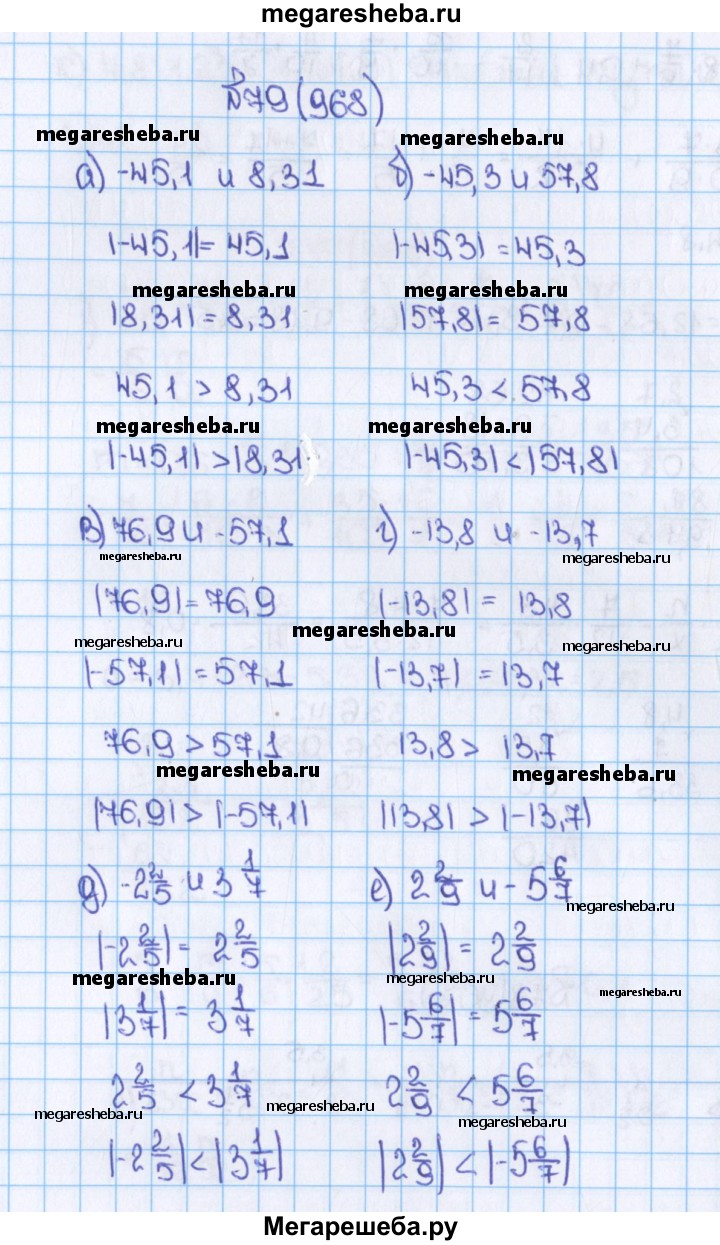 megaresheba.ru
№79 (968)
megaresheba.ru megaresheba.ru
а) -45,1 и 8,31 б) -45,3 и 57,8
|-45,1|= 45,1 |-45,3| = 45,3
megaresheba.ru megaresheba.ru
|8,31| = 8,31 |57,8| = 57,8
45,1 > 8,31 45,3 < 57,8
megaresheba.ru megaresheba.ru
|-45,1| > |8,31 |-45,3| < |57,8|
в) 76,9 и -57,1 г) -13,8 и -13,7
megaresheba.ru megaresheba.ru
|76,9| = 76,9 |-13,8| = 13,8
megaresheba.ru megaresheba.ru megaresheba.ru
|-57,1| = 57,1 |-13,7| = 13,7
76,9 > 57,1 13,8 > 13,7
megaresheba.ru megaresheba.ru
|76,9| > |-57,1| |13,8| > |-13,7|
д) -2 2/5 и 3 1/7 е) 2 2/9 и -5 6/7
megaresheba.ru
|-2 2/5| = 2 2/5 |2 2/9| = 2 2/9
megaresheba.ru megaresheba.ru megaresheba.ru
|3 1/7| = 3 1/7 |-5 6/7| = 5 6/7
2 2/5 < 3 1/7 2 2/9 < 5 6/7
megaresheba.ru megaresheba.ru megaresheba.ru
|-2 2/5| < |3 1/7| |2 2/9| < |-5 6/7|
Мегарешеба.ру